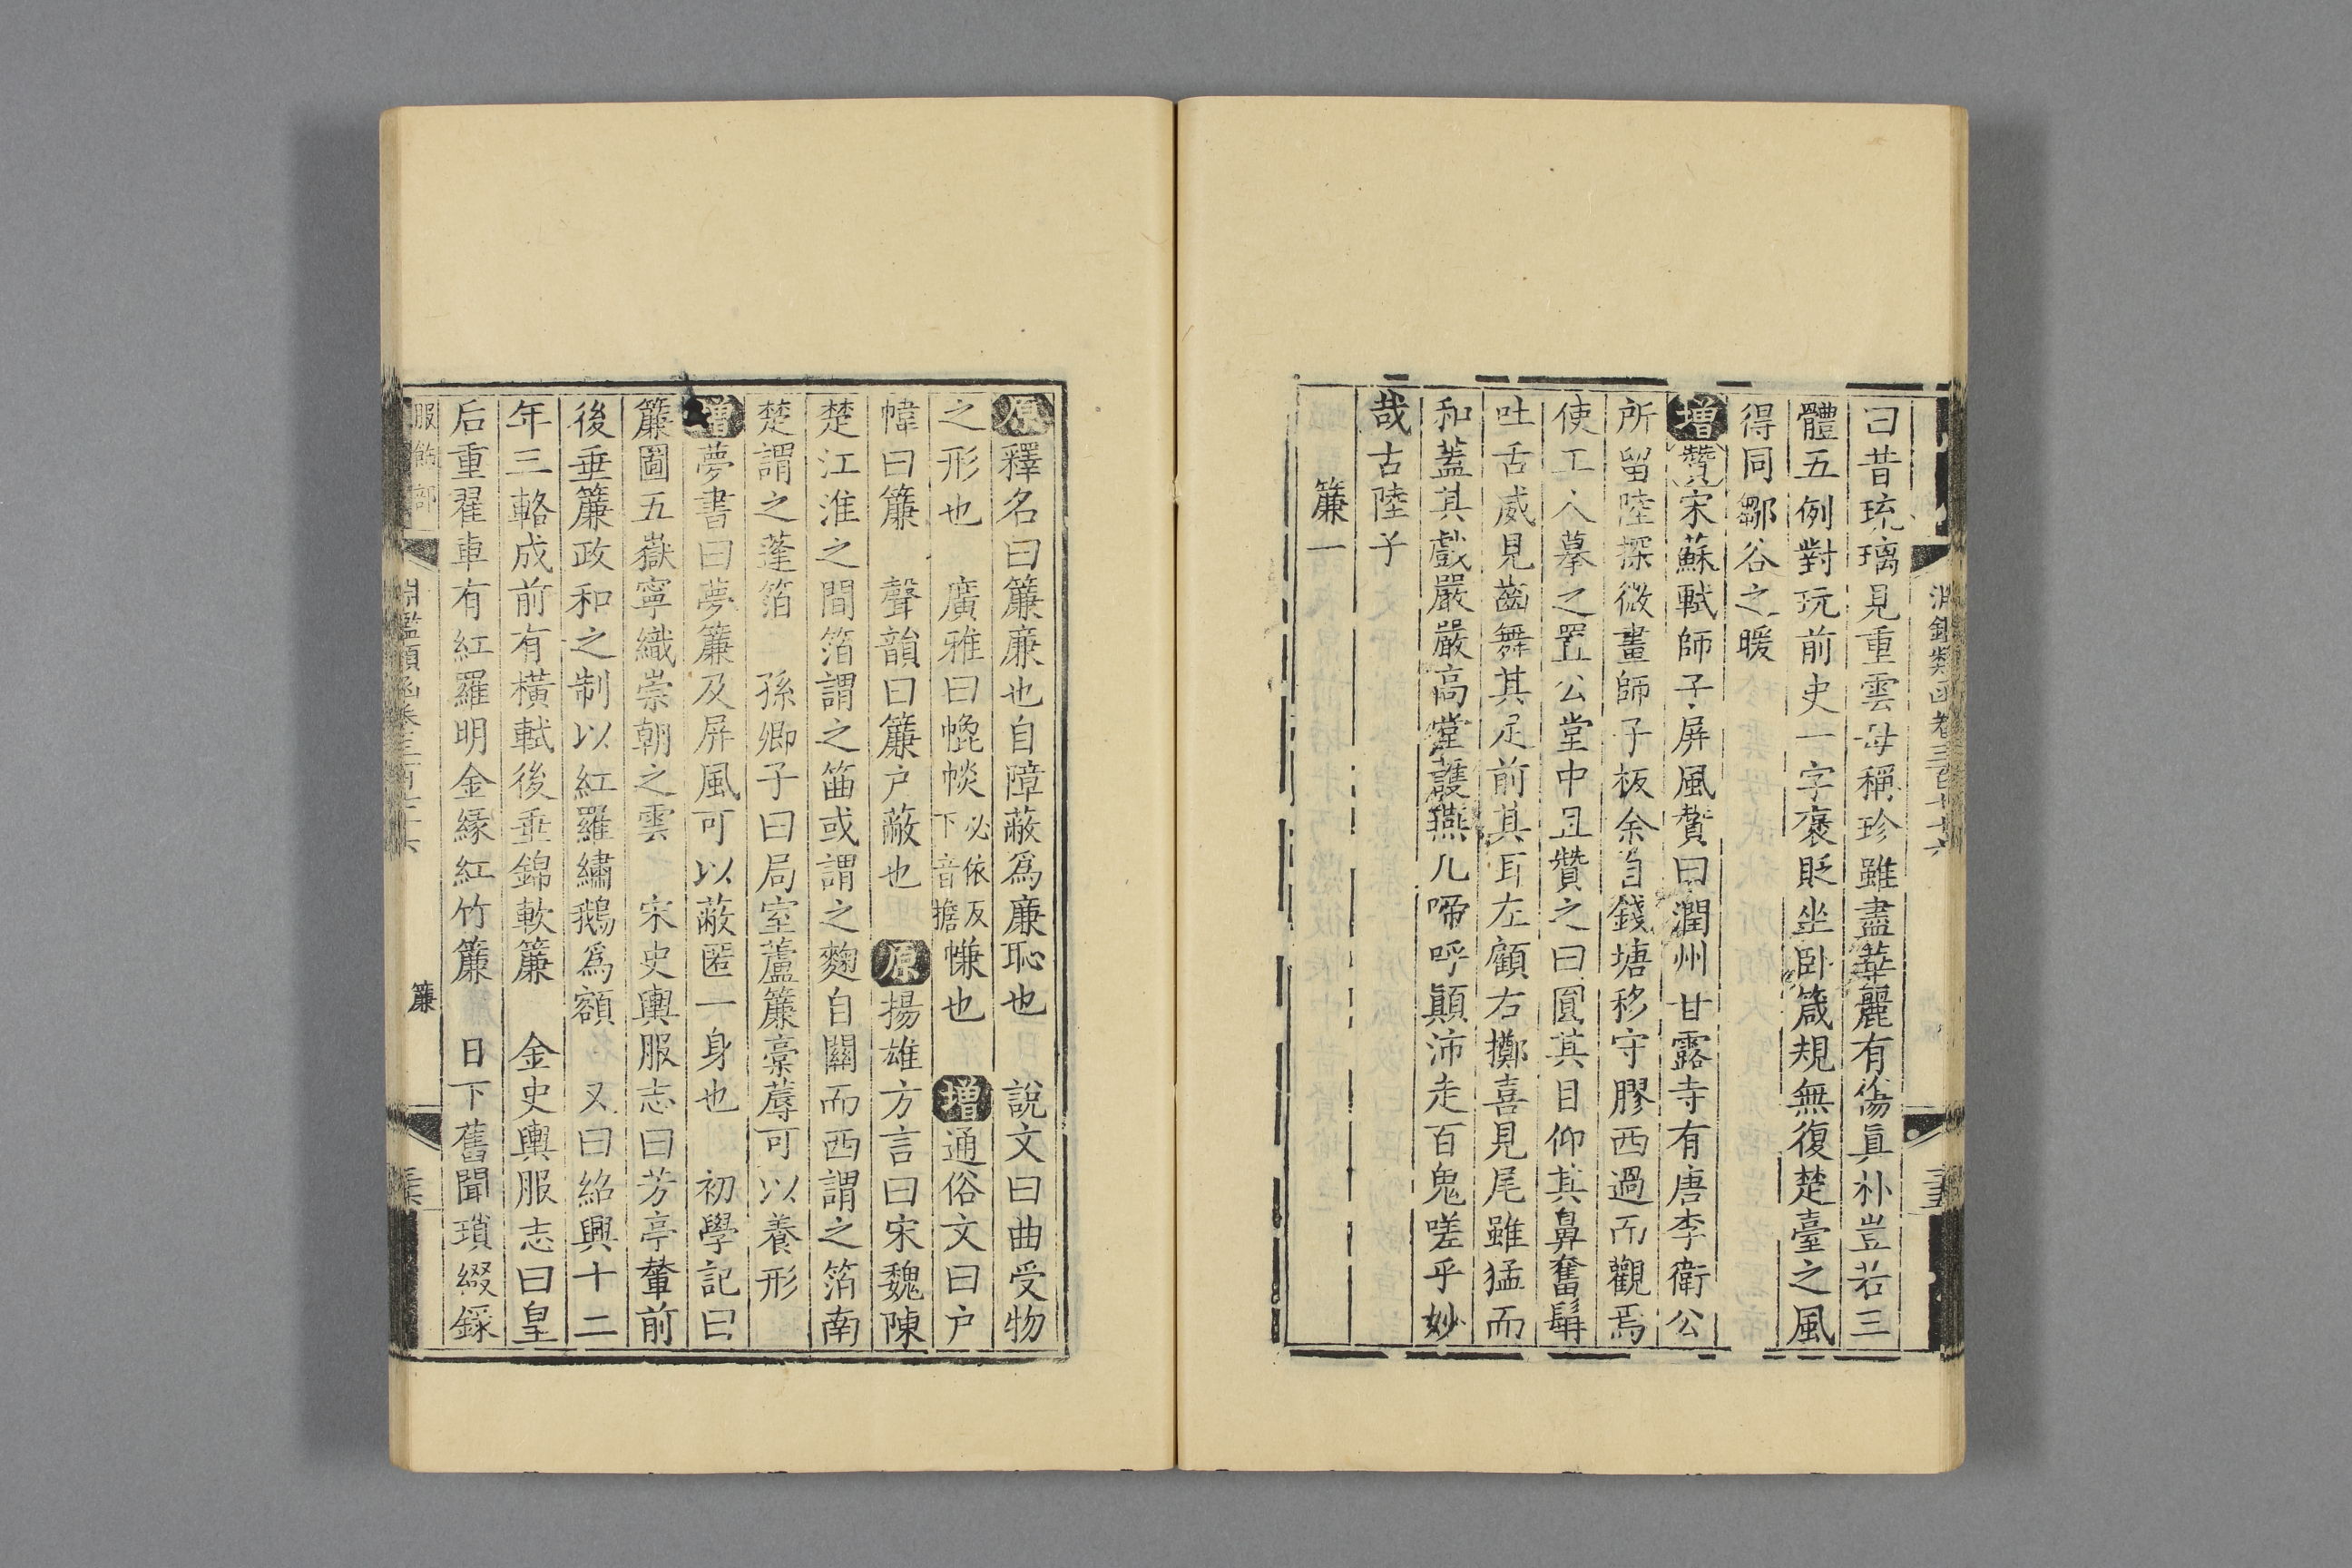 曰昔琉璃見重雲母稱珍雖盡華麗有傷眞朴豈若三
體五例對玩前史一字褒貶坐卧箴規無復楚臺之風
得同鄒谷之暖
增贊宋蘇軾師子屏風贊曰潤州甘露寺有唐李衛公
所留陸探微畫師子板余自錢塘移守膠西過而觀焉
使工人摹之置公堂中且贊之曰圓其目仰其鼻奮髯
吐舌威見齒舞其足前其耳左顧右擲喜見尾雖猛而
和蓋其戲嚴嚴高堂護燕几啼呼顛沛走百鬼嗟乎妙
哉古陸子
簾一
原釋名曰簾廉也自障蔽爲廉恥也 說文曰曲受物
之形也 廣雅曰㡈㡘必依反下音擔㡘也 增通俗文曰户
幃曰簾 聲韻曰簾户蔽也 原揚雄方言曰宋魏陳
楚江淮之間箔謂之笛或謂之麴自關而西謂之箔南
楚謂之蓬箔 孫卿子曰局室蘆簾槀蓐可以養形
增夢書曰夢簾及屏風可以蔽匿一身也 初學記曰
簾圖五嶽寧織崇朝之雲 宋史輿服志曰芳亭輦前
後垂簾政和之制以紅羅繡鵝爲額 又曰紹興十二
年三輅成前有橫軾後垂錦軟簾 金史輿服志曰皇
后重翟車有紅羅明金緣紅竹簾 日下舊聞瑣綴錄
服飾部 淵鑑類函卷三百七十六 簾